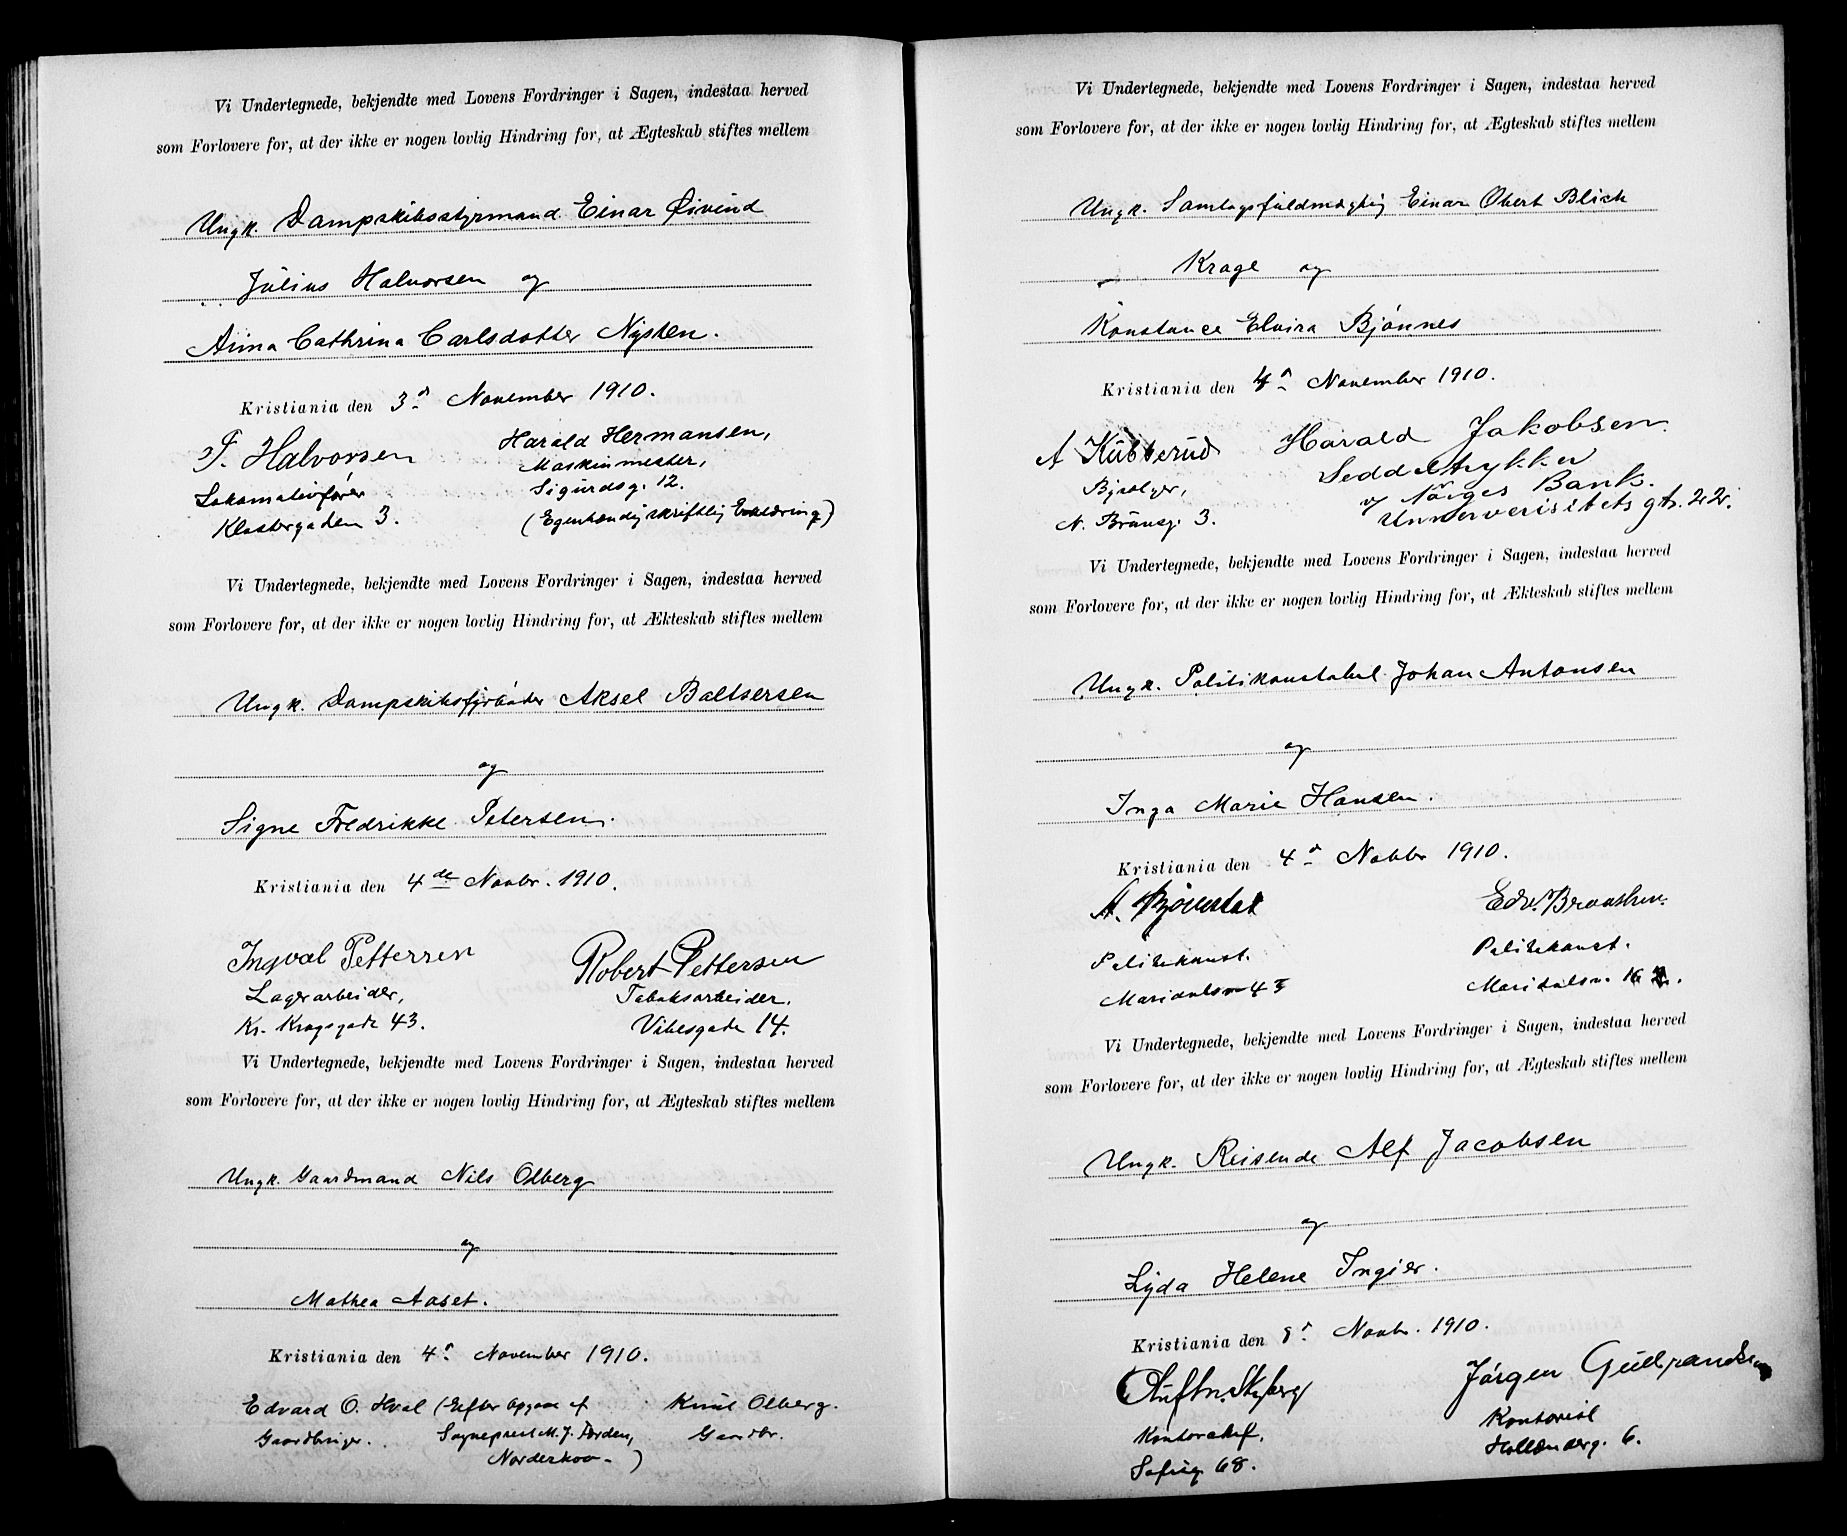 Vi Undertegnede, bekjendte med Lovens Fordringer i Sagen, indestaa herved
som Forlovere for, at der ikke er nogen lovlig Hindring for, at Ægteskab stiftes mellem
Ungk. Dampskibsstyrmand Einar Øivind
Julius Halvorsen og
Aina Cathrina Carlsdotter Nysten.
Kristiania den 3d November 1910.
T. Halvorsen
Lokomativfører
Klostergaden 3.
Harald Hermansen,
Maskinmester,
Sigurdsg. 12.
(Egenhændig skriftlig Erklæring)
Vi Undertegnede, bekjendte med Lovens Fordringer i Sagen, indestaa herved
som Forlovere for, at der ikke er nogen lovlig Hindring for, at Ækteskab stiftes mellem
Ungk. Dampskibsfyrbøder Aksel Baltsersen
og
Signe Fredrikke Petersen.
Kristiania den 4de Novbr. 1910.
Ingval Pettersen
Lagerarbeider,
Kr. Krogsgade 43.
Robert Pettersen
Tabaksarbeider.
Vibesgade 14.
Vi Undertegnede, bekjendte med Lovens Fordringer i Sagen, indestaa herved
som Forlovere for, at der ikke er nogen lovlig Hindring for, at Ægteskab stiftes mellem
Ungk. Gaardmand Nils Olberg
og
Mathea Aaset.
Kristiania den 4d November 1910.
Edvard O. Hval
Gaardbruger.
(Efter Opgave af
Sogneprest M. J. Færden,
Norderhov.)
Knut Olberg.
Gaardbr.
Vi Undertegnede, bekjendte med Lovens Fordringer i Sagen, indestaa herved
som Forlovere for, at der ikke er nogen lovlig Hindring for, at Ægteskab stiftes mellem
Ungk. Samlagsfuldmægtig Einar Obert Blich
Krage og
Konstance Elvira Bjønnes
Kristiania den 4d November 1910.
A Kubberud
Bjælger,
N. Brunsg. 3.
Harald Jakobsen.
Seddeltrykker
v/ Norges Bank.
Unnerverisitets gt. 22.
Vi Undertegnede, bekjendte med Lovens Fordringer i Sagen, indestaa herved
som Forlovere for, at der ikke er nogen lovlig Hindring for, at Ækteskab stiftes mellem
Ungk. Politikonstabel Johan Antonsen
og
Inga Marie Hansen.
Kristiania den 4d Novbr 1910.
A. Bjørnstad
Politikonst.
Maridalsv 43
Edv. Braathen.
Politikonst.
Maridalsv. 16
Vi Undertegnede, bekjendte med Lovens Fordringer i Sagen, indestaa herved
som Forlovere for, at der ikke er nogen lovlig Hindring for, at Ægteskab stiftes mellem
Ungk. Reisende Alf Jacobsen
og
Lyda Helene Ingier.
Kristiania den 8d Novbr. 1910.
Kontorchef.
Sofieg 68.
Jørgen Gulbrandsen
Kontorist
Hollenderg. 6.